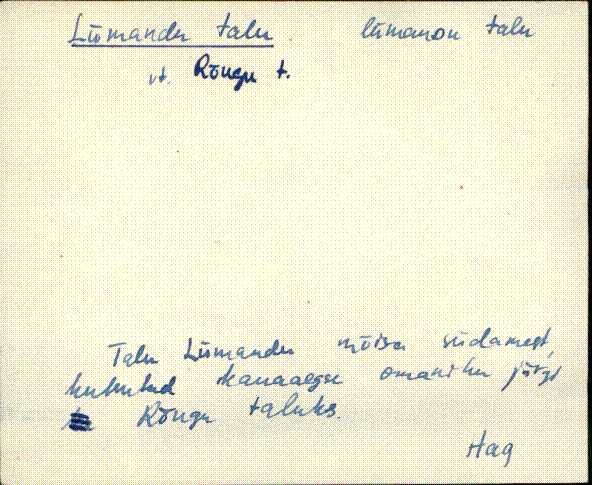 Lümandu talu. lümanDu talu
vt. Rõugu t.
Talu Lümandu mõisa südamest,
kutsutud kauaaegse omaniku järgi
Rõugu taluks.
Hag